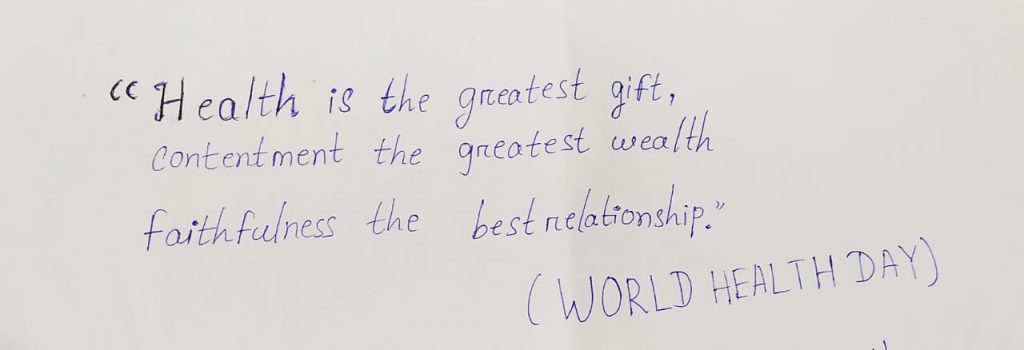 "Health is the greatest gift,
contentment the greatest wealth
faithfulness the best relationship."
(WORLD HEALTH DAY)